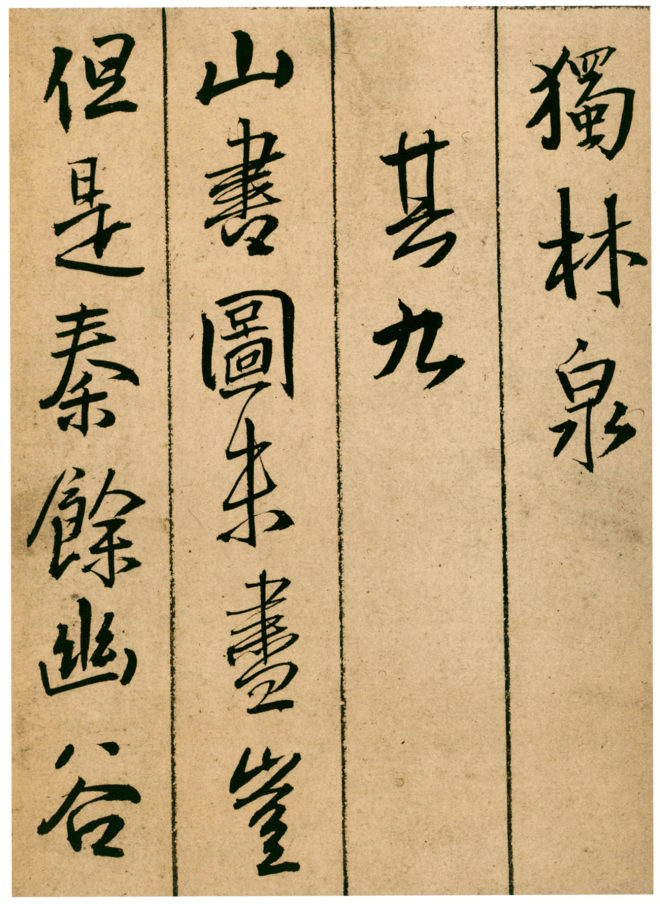 獨林泉
其九
山書圖未盡豈
但是秦餘幽谷